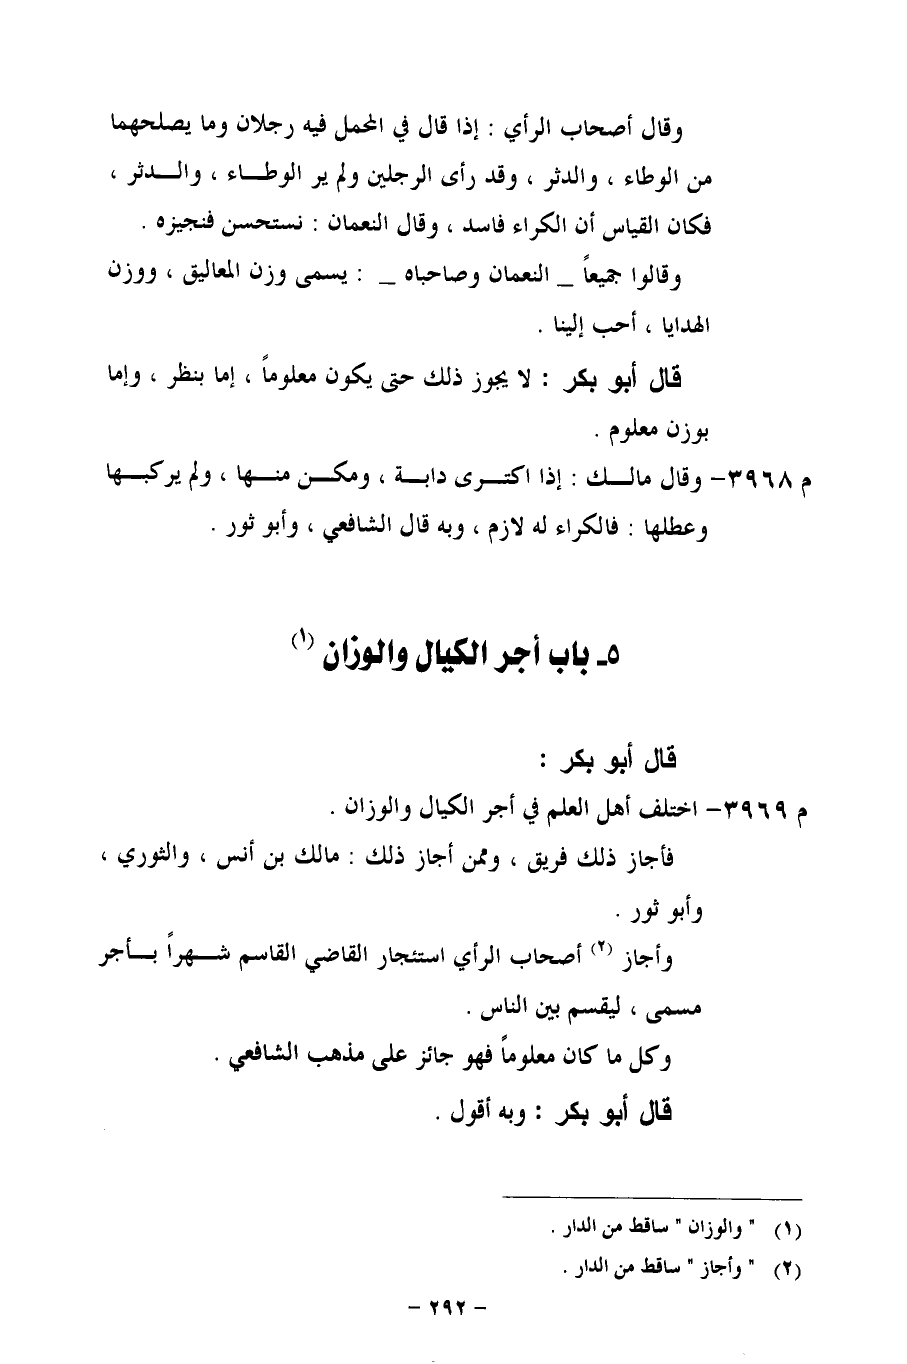 وقال أصحاب الرأي : إذا قال في المحمل فيه رجلان وما يصلحهما
من الوطاء ، والدثر ، وقد رأى الرجلين ولم ير الوطـاء ، والـدثر ،
فكان القياس أن الكراء فاسد ، وقال النعمان : نستحسن فنجيزه .
وقالوا جميعاً _ النعمان وصاحباه _ : يسمى وزن المعاليق ، ووزن
الهدايا ، أحب إلينا .
قال أبو بكر : لا يجوز ذلك حتى يكون معلوماً ، إما بنظر ، وإما
بوزن معلوم .
م ٣٩٦٨– وقال مالـك : إذا اكتـرى دابـة ، ومكـن منـها ، ولم يركبـها
وعطلها : فالكراء له لازم ، وبه قال الشافعي ، وأبو ثور .
٥ـ باب أجر الكيال والوزان (١)
قال أبو بكر :
م ٣٩٦٩– اختلف أهل العلم في أجر الكيال والوزان .
فأجاز ذلك فريق ، وممن أجاز ذلك : مالك بن أنس ، والثوري ،
وأبو ثور .
وأجاز (٢) أصحاب الرأي استئجار القاضي القاسم شـهراً بـأجر
مسمى ، ليقسم بين الناس .
وكل ما كان معلوماً فهو جائز على مذهب الشافعي .
قال أبو بكر : وبه أقول .
(١) " والوزان " ساقط من الدار .
(٢) " وأجاز " ساقط من الدار .
– ٢٩٢ –